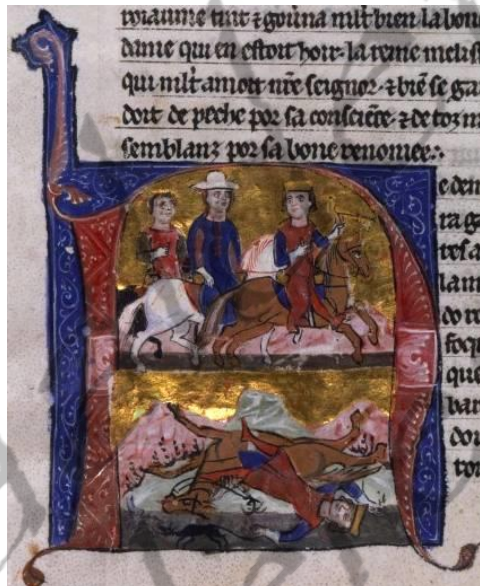 roiaume tint ⁊ goũna ml̃t bien la bone
dame qui en estoit hoir la reine melis
qui ml̃t amoit nr̃e seignor ⁊ biẽ se ga
doit de peche por sa consciẽce ⁊ de toz m
semblanz por sa bone renomee
e dem
ra ga
tes a
la m
do ro
foqu
que
bar
dou
tor